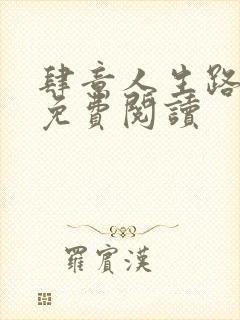 肆意人生路
免費閱讀
羅賓漢